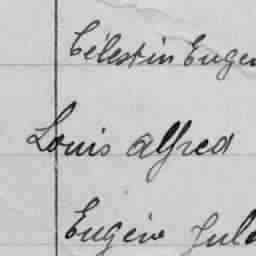 Célestin Eugen
Louis Alfred
Eugène Jule